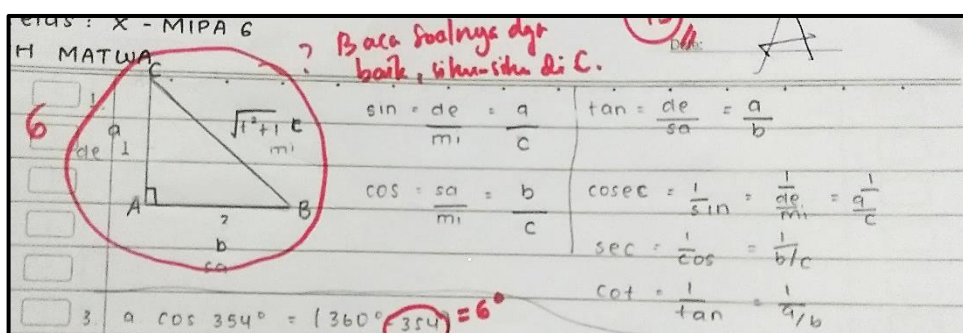 Kelas : X - MIPA 6
H MATWA
? Baca soalnya dgn
baik, siku-siku di C.
Date:
6
1.
C
a
de 1
√1²+1 c
mi
A
B
2
b
sa
sin = de/mi = a/c
cos = sa/mi = b/c
tan = de/sa = a/b
cosec = 1/sin = 1/de/mi = 1/a/c
sec = 1/cos = 1/b/c
cot = 1/tan = 1/a/b
3. a. cos 354° = (360° - 354) = 6°